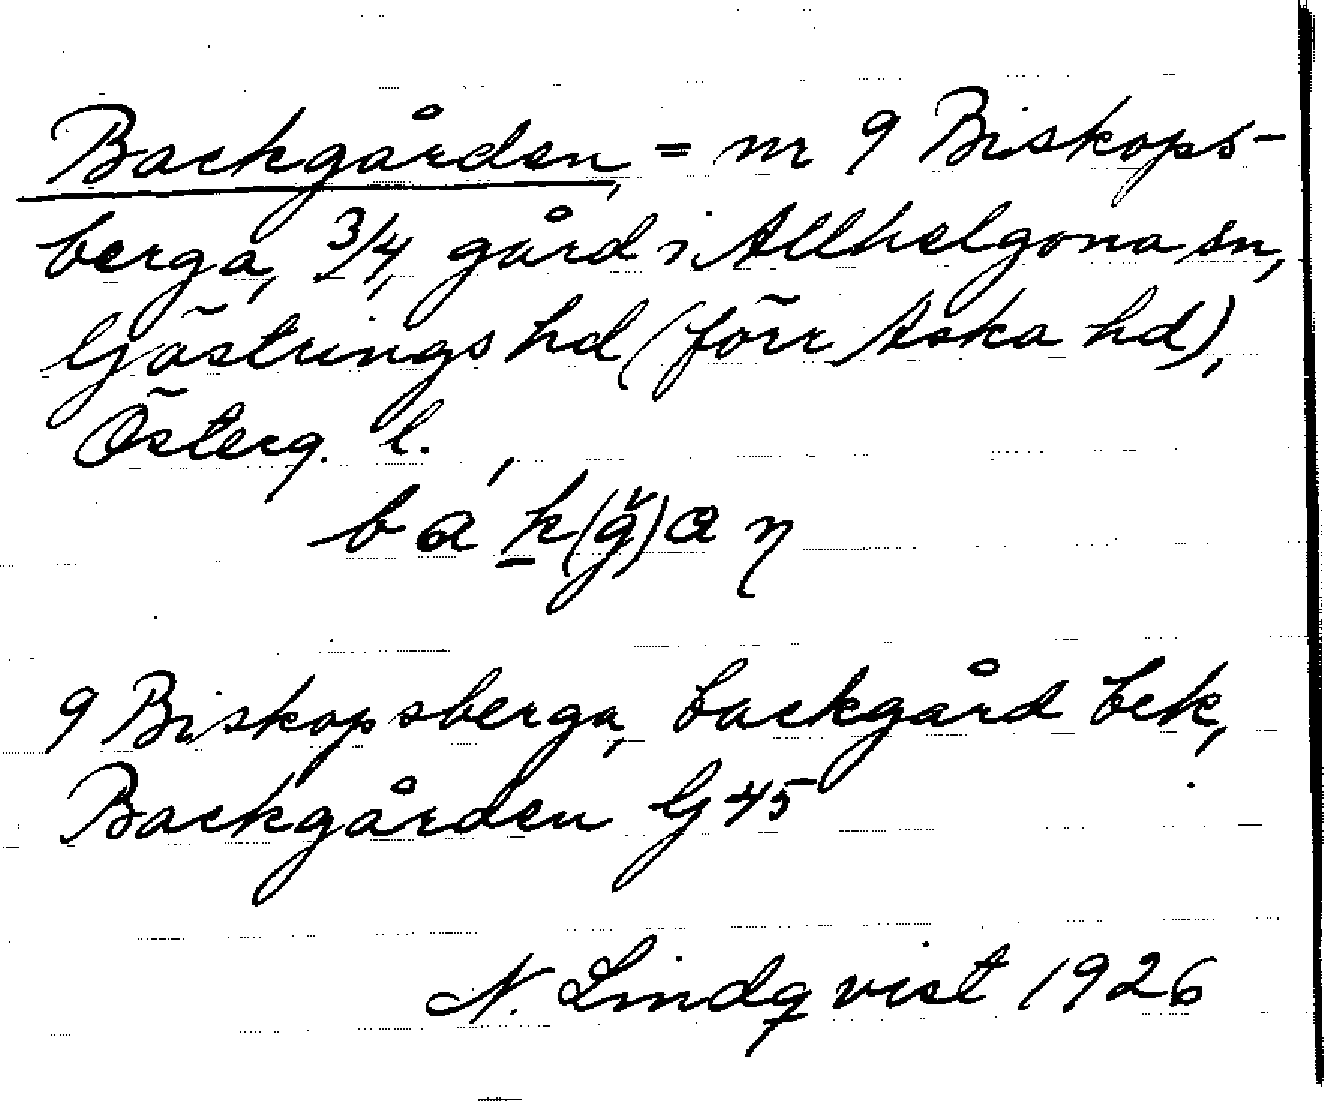 Backgården, = nr 9 Biskops-
berga, 3/4, gård i Allhelgona sn,
Göstrings hd (förr Aska hd),
Österg. l.
9 Biskopsberga, backgård bek,
Backgården G 45
N. Lindqvist 1926